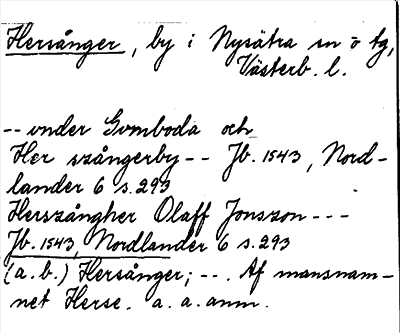 Hersånger, by i Nysätra sn o tg,
Västerb. l.
-- vnder Gomboda och
Her szångerby -- Jb. 1543, Nord-
lander 6 s. 293
Herszångher Olaff Jonszon ---
Jb. 1543, Nordlander 6 s. 293
(a. b.) Hersånger; --. Af mansnam-
net Herse. a. a. anm.